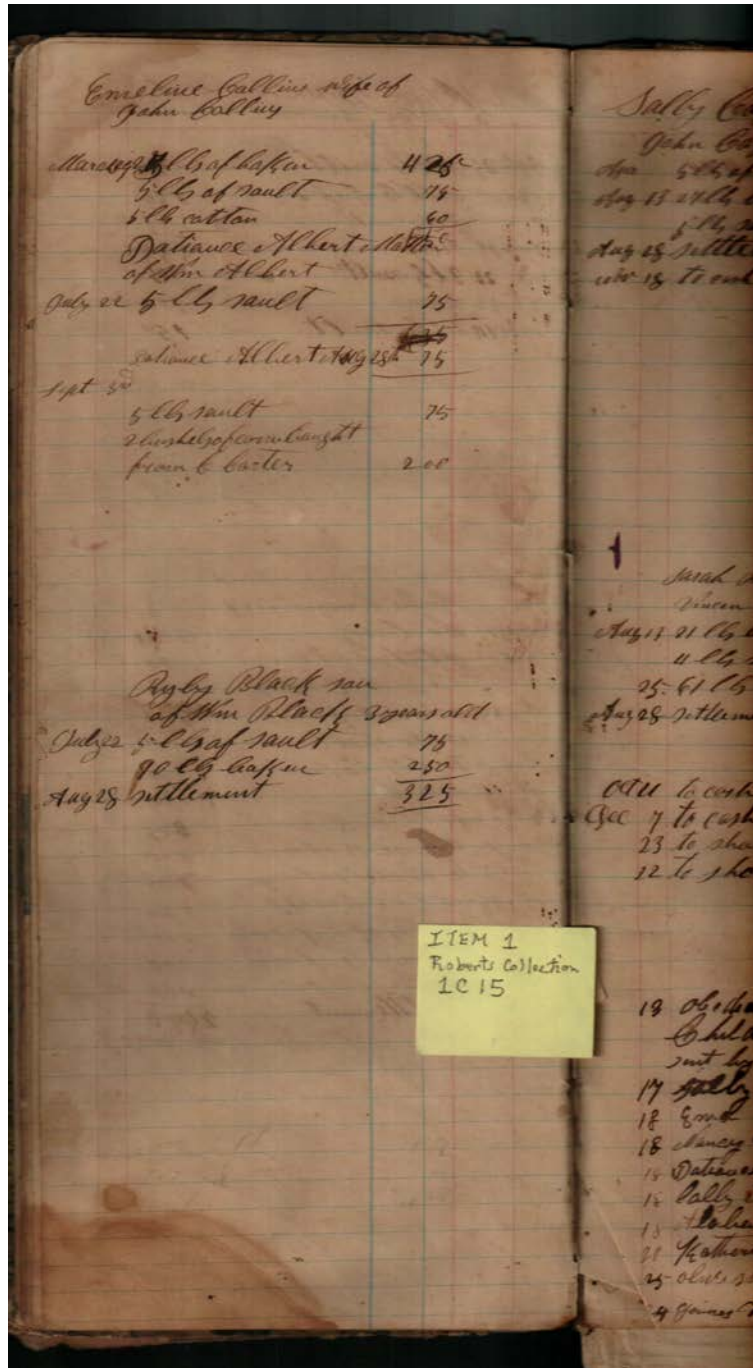 Emeline Collins wife of
John Collins
lbs of 425
5 lbs of sault 75
5 lb cotton 60
Patiance Albert
of Wm Albert
July 22 5 lbs sault 75
Albert Aug 28 75
Sept 3rd
5 lbs sault 75
2 bushels of corn baught
from C Carter 200
Black son
of Wm Black 3 years old
July 22 5 lbs of sault 75
90 lbs 250
Aug 28 settlement 325
ITEM 1
Roberts Collection
1C15
Sally
John
5 lb of
Aug 13 27 lb
5 lb
Aug 28 settle
nov 18 to
Sarah
Aug 13 21 lbs
4 lbs
25 61 lbs
Aug 28 settlem
to cash
Dec 7 to cash
23 to sho
12 to sho
18
Child
sent by
17 Sally
18 Eme
18 Nancy
18 Patiance
18
18
21 Kathen
25
24